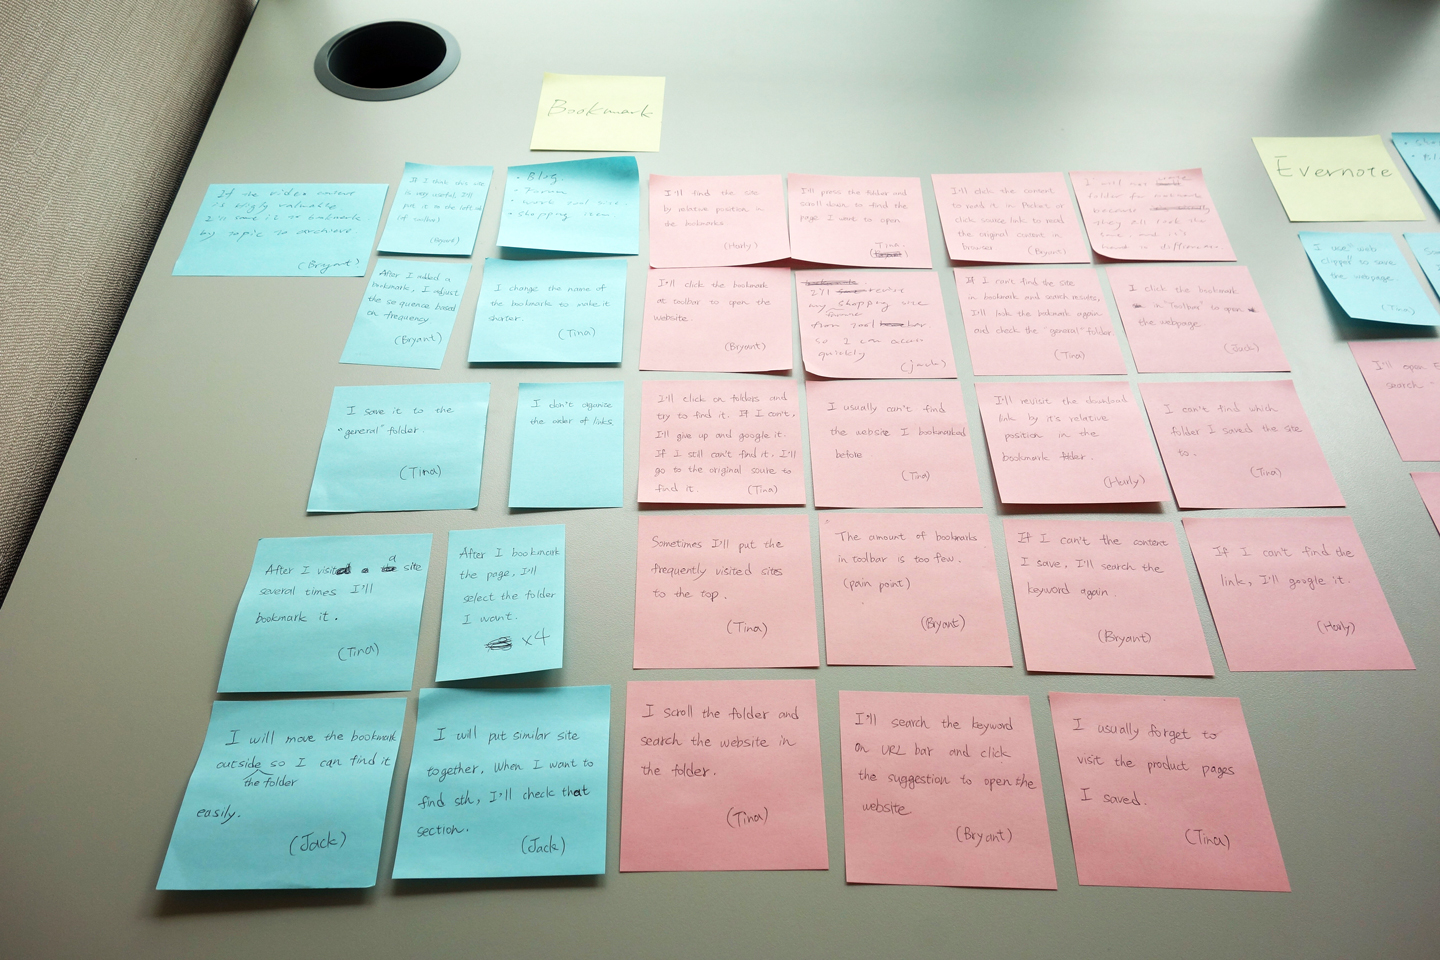 Bookmark
Evernote
If the video content
is highly valuable
I'll save it to bookmark
by topic to archive.
(Bryant)
If I think this site
is very useful, I'll
put it to the left side
of toolbar
(Bryant)
• Blog.
• Forum
• work tool site.
• shopping item.
I'll find the site
by relative position in
the bookmarks.
(Harly)
I'll press the folder and
scroll down to find the
page I want to open
Tina.
I'll click the content
to read it in Pocket or
click source link to read
the original content in
browser
(Bryant)
I will not
folder for
because
they all look the
same, and it's
hard to
I use web
clipper to save
the webpage.
(Tina)
After I added a
bookmark, I adjust
the sequence based
on frequency
(Bryant)
I change the name of
the bookmark to make it
shorter.
(Tina)
I'll click the bookmark
at toolbar to open the
website.
(Bryant)
I'll revisit
my shopping site
from tool bar.
so I can access
quickly
(Jack)
If I can't find the site
in bookmark and search results,
I'll look the bokmark again
and check the "general" folder.
(Tina)
I click the bookmark
in "Toolbar" to open
the webpage.
(Jack)
I'll open E
search
I save it to the
"general" folder.
(Tina)
I don't organize
the order of links
I'll click on folders and
try to find it. If I can't,
I'll give up and google it.
If I still can't find it, I'll
go to the original soure to
find it. (Tina)
I usually can't find
the website I bookmarked
before
(Tina)
I'll revisit the download
link by it's relative
position in the
bookmark
(Harly)
I can't find which
folder I saved the site
to.
(Tina)
After I visit a site
several times I'll
bookmark it.
(Tina)
After I bookmark
the page, I'll
select the folder
I want.
x4
Sometimes I'll put the
frequently visited sites
to the top.
(Tina)
The amount of bookmarks
in toolbar is too few.
(pain point)
(Bryant)
If I can't the content
I save, I'll search the
keyword again.
(Bryant)
If I can't find the
link, I'll google it.
(Harly)
I will move the bookmark
outside so I can find it
the folder
easily.
(Jack)
I will put similar site
together, When I want to
find sth, I'll check that
section.
(Jack)
I scroll the folder and
search the website in
the folder.
(Tina)
I'll search the keyword
on URL bar and click
the suggestion to open the
website
(Bryant)
I usually forget to
visit the product pages
I saved.
(Tina)